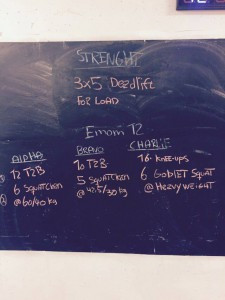 STRENGHT
3x5 Deadlift
FOR LOAD
Emom 12
ALPHA
12 T2B
6 SQUATCLEAN
@60/40 kg
BRAVO
10 T2B
5 SQUATCLEAN
@42.5/30 kg
CHARLIE
16 KNEE-UPS
6 GOBLET SQUAT
@HEAVY WEIGHT